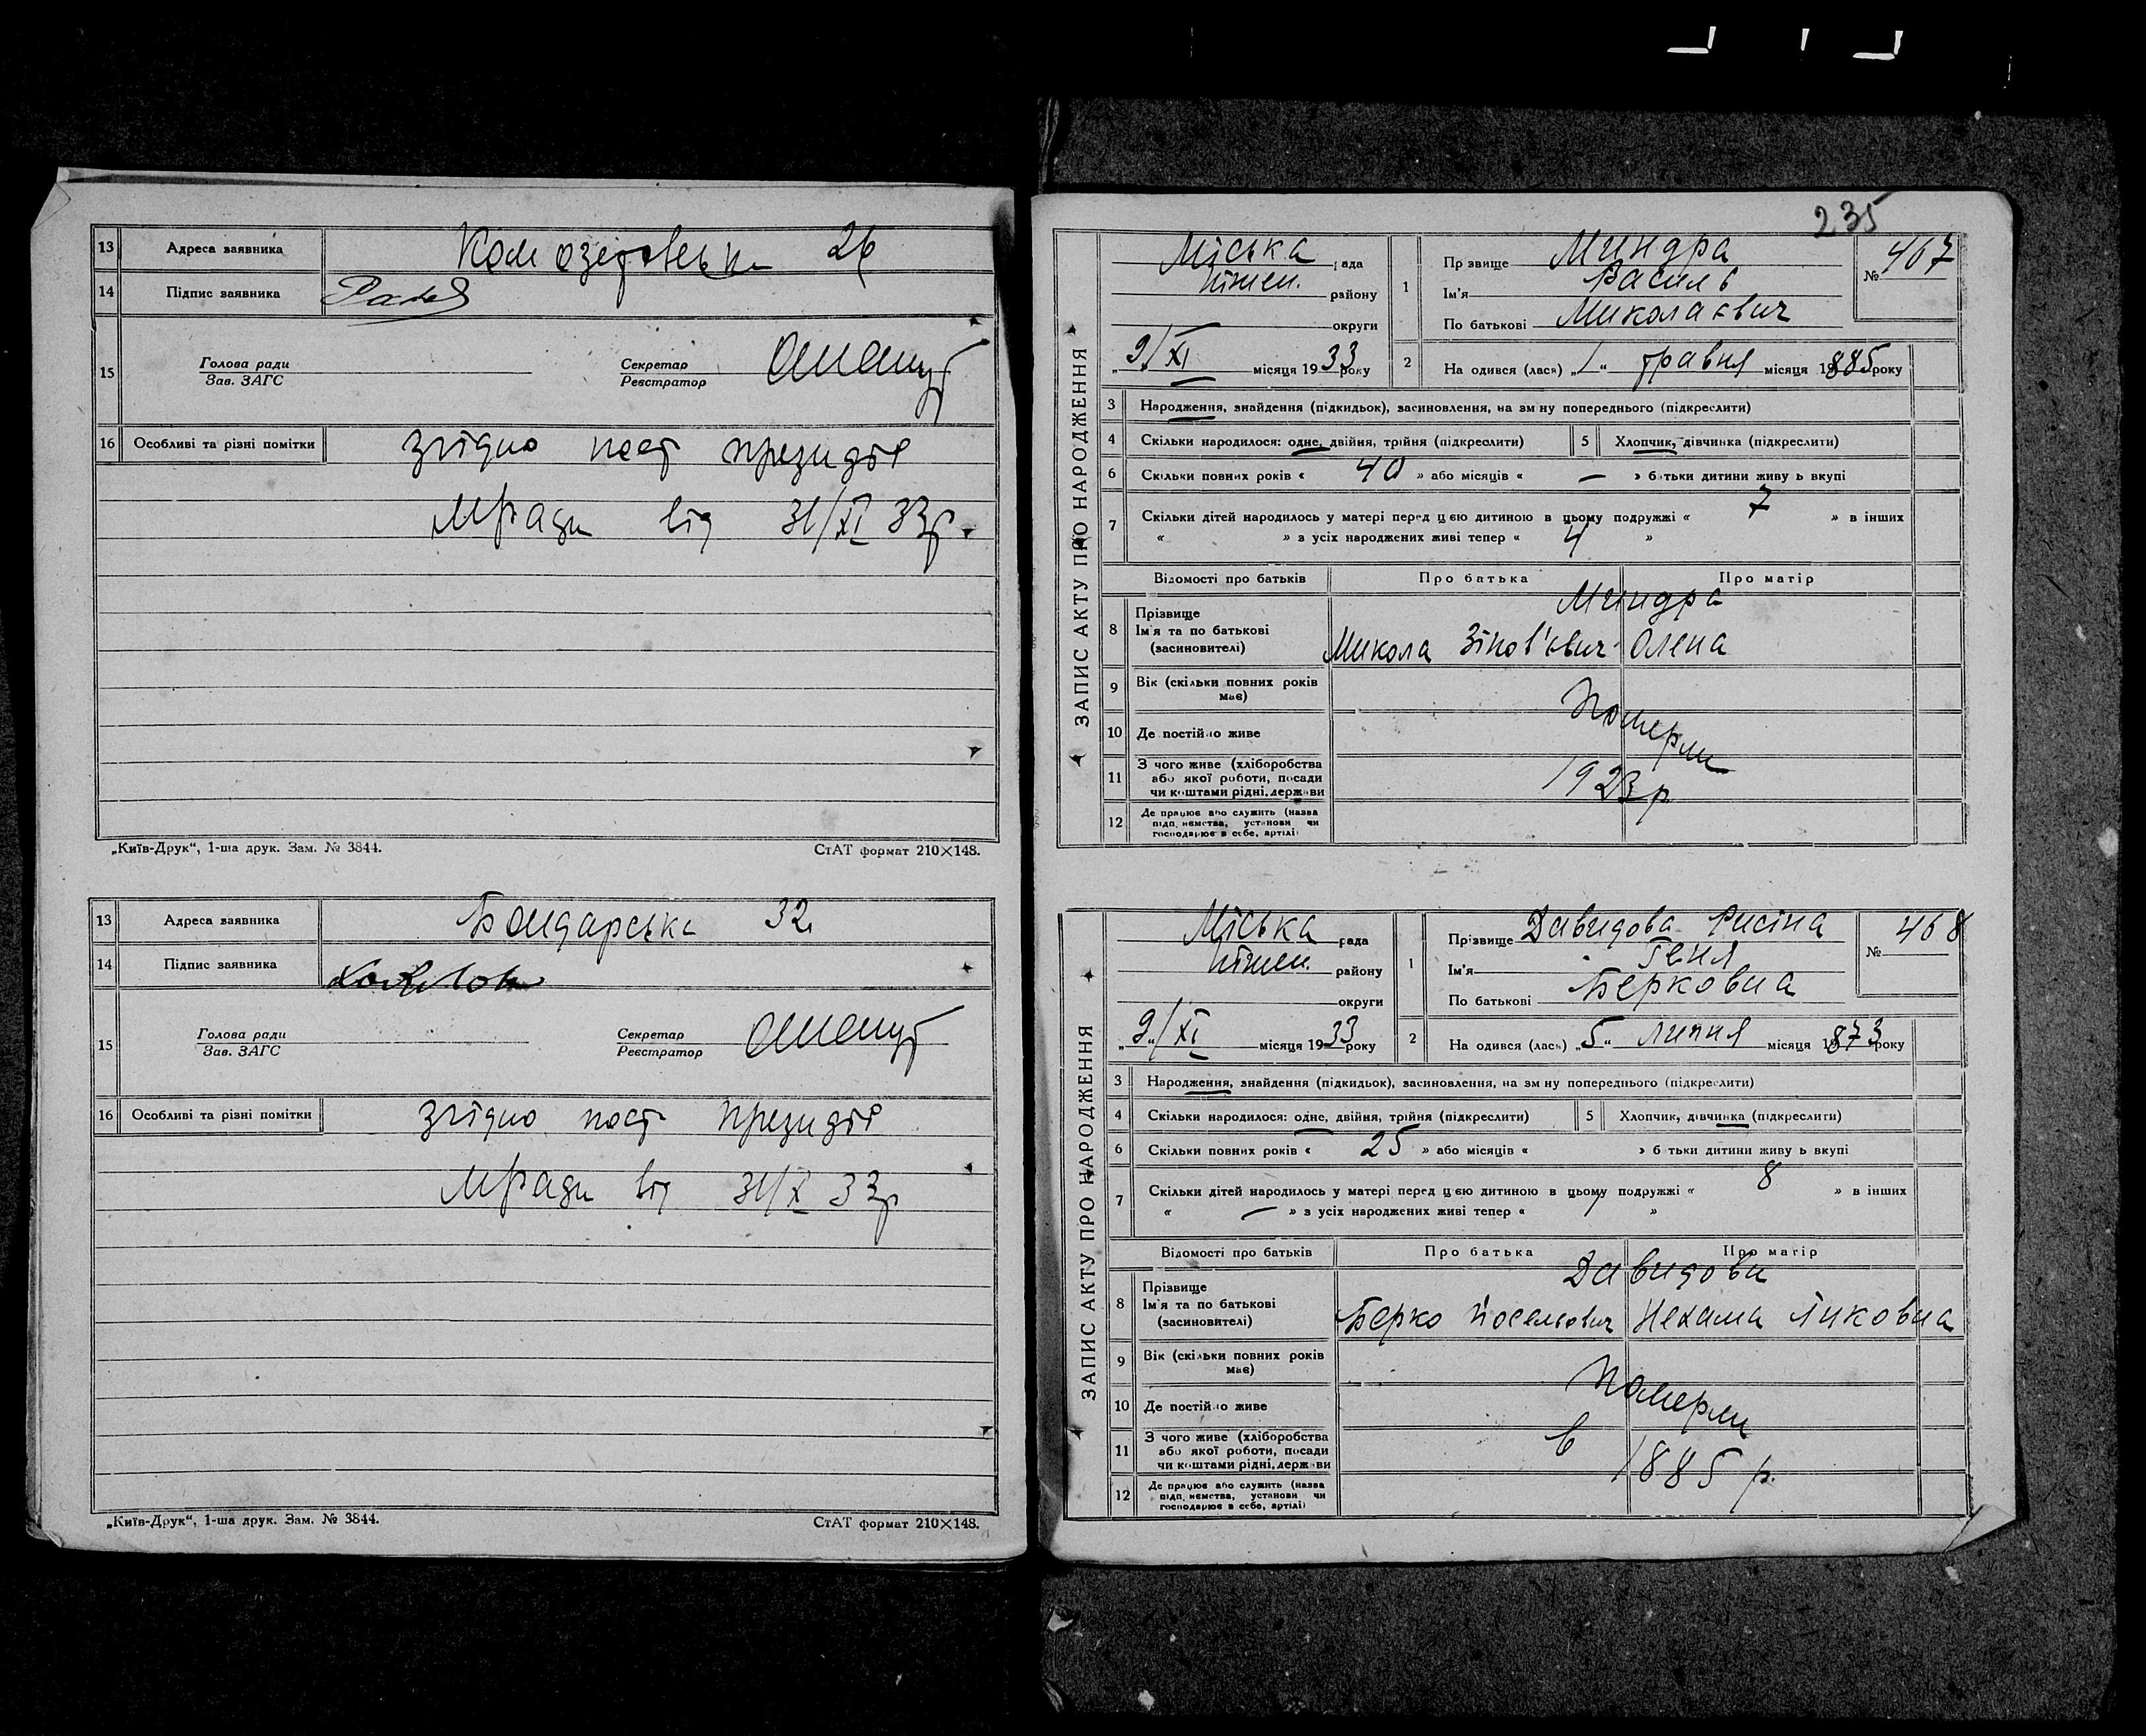 13 Адреса заявника 26
14 Підпис заявника
15 Голова ради Секретар
Зав. ЗАГС Реєстратор
16 Особливі та різні помітки згідно пост президії
Мради від 31/XI 33р.
„Київ-Друк“, 1-ша друк. Зам. № 3844. СтАТ формат 210×148.
13 Адреса заявника Бондарська 32
14 Підпис заявника
15 Голова ради Секретар
Зав. ЗАГС Реєстратор
16 Особливі та різні помітки згідно пост президії
Мради від 31/X 33р
„Київ-Друк“, 1-ша друк. Зам. № 3844. СтАТ формат 210×148.
235
ЗАПИС АКТУ ПРО НАРОДЖЕННЯ
Міська рада
району
округи
„9“/XI місяця 1933 року
1 Прізвище Миндра
Ім'я Василь
По батькові Миколаєвич
№ 467
2 На одився (лась) „1“ травня місяця 1885 року
3 Народження, знайдення (підкидьок), засиновлення, на зм ну попереднього (підкреслити)
4 Скільки народилося: одне, двійня, трійня (підкреслити) 5 Хлопчик, дівчинка (підкреслити)
6 Скільки повних років « 40 » або місяців « — » б тьки дитини живу ь вкупі
7 Скільки дітей народилось у матері перед цією дитиною в цьому подружжі « 7 » в інших
« » з усіх народжених живі тепер « 4 »
Відомості про батьків Про батька Про матір
8 Прізвище Миндра
Ім'я та по батькові Микола Зінов'євич Олена
(засиновителі)
9 Вік (скільки повних років має)
10 Де постійно живе Померли
11 З чого живе (хліборобства 1923р
або якої роботи, посади
чи коштами рідні, держави
12 Де працює або служить (назва
підп. ємства, установи чи
господарює в себе, артілі)
ЗАПИС АКТУ ПРО НАРОДЖЕННЯ
Міська рада
району
округи
„9“/XI місяця 1933 року
1 Прізвище Давидова Рисіна
Ім'я Геня
По батькові Берковна
№ 468
2 На одився (лась) „5“ липня місяця 1873 року
3 Народження, знайдення (підкидьок), засиновлення, на зм ну попереднього (підкреслити)
4 Скільки народилося: одне, двійня, трійня (підкреслити) 5 Хлопчик, дівчинка (підкреслити)
6 Скільки повних років « 25 » або місяців « » б тьки дитини живу ь вкупі
7 Скільки дітей народилось у матері перед цією дитиною в цьому подружжі « 8 » в інших
« — » з усіх народжених живі тепер « 1 »
Відомості про батьків Про батька Про матір
8 Прізвище Давидови
Ім'я та по батькові Берко Йоселєвич Нехама Ицковна
(засиновителі)
9 Вік (скільки повних років має)
10 Де постійно живе Померли
11 З чого живе (хліборобства в 1885 р.
або якої роботи, посади
чи коштами рідні, держави
12 Де працює або служить (назва
підп. ємства, установи чи
господарює в себе, артілі)